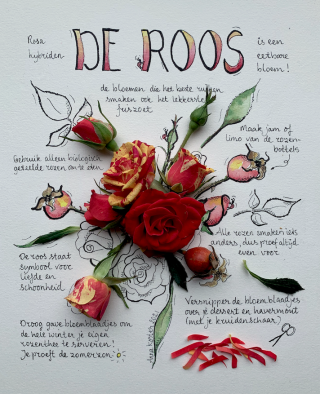 Rosa
hybriden
DE ROOS
is een
eetbare
bloem!
de bloemen die het beste ruiken
smaken ook het lekkerste
fris zoet
Maak jam of
limo van de rozen-
bottels
Gebruik alleen biologisch
geteelde rozen om te eten
Alle rozen smaken iets
anders, dus proef altijd
even voor
De roos staat
symbool voor
liefde en
schoonheid
Versnipper de bloemblaadjes
over je dessert en havermout
(met je kruidenschaar)
Droog gave bloemblaadjes om
de hele winter je eigen
rozenthee te serveren!
Je proeft de zomerzon
Anne